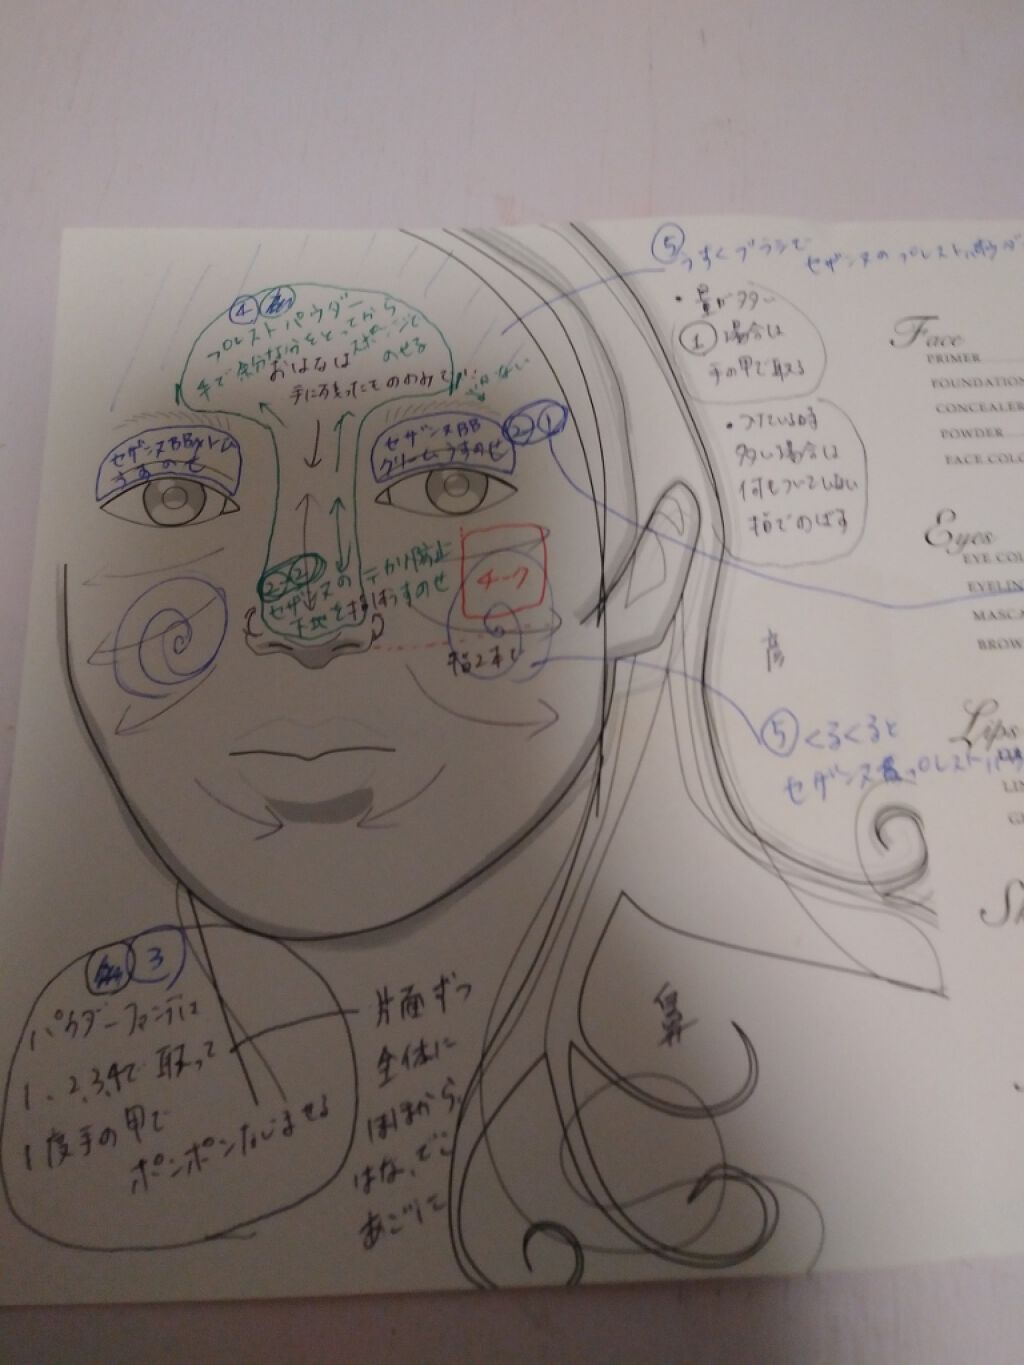 ⑤うすくブラシで
セザンヌのプレストパウダ
④
プレストパウダー
手で余分な分をとってから
おはなはスポンジで
のせる
手に残ったもののみで
・量が多い
①場合は
手の甲で取る
・つけている時
多い場合は
何もついていない
指でのばす
セザンヌBBクリーム
うすのせ
セザンヌBB
クリームうすのせ
②-①
②-②
セザンヌのテカリ防止
下地を指でうすのせ
チーク
指2本
⑤くるくると
セザンヌ プレストパウ
彦
鼻
③
パウダーファンデは
1、2,3,4で取って
1度手の甲で
ポンポンなじませる
片面ずつ
全体に
ほほから、
はな、でこ
あごに
Face
PRIMER
FOUNDATION
CONCEALER
POWDER
FACE COLO
Eyes
EYE COL
EYELIN
MASCA
BROW
Lips
LIN